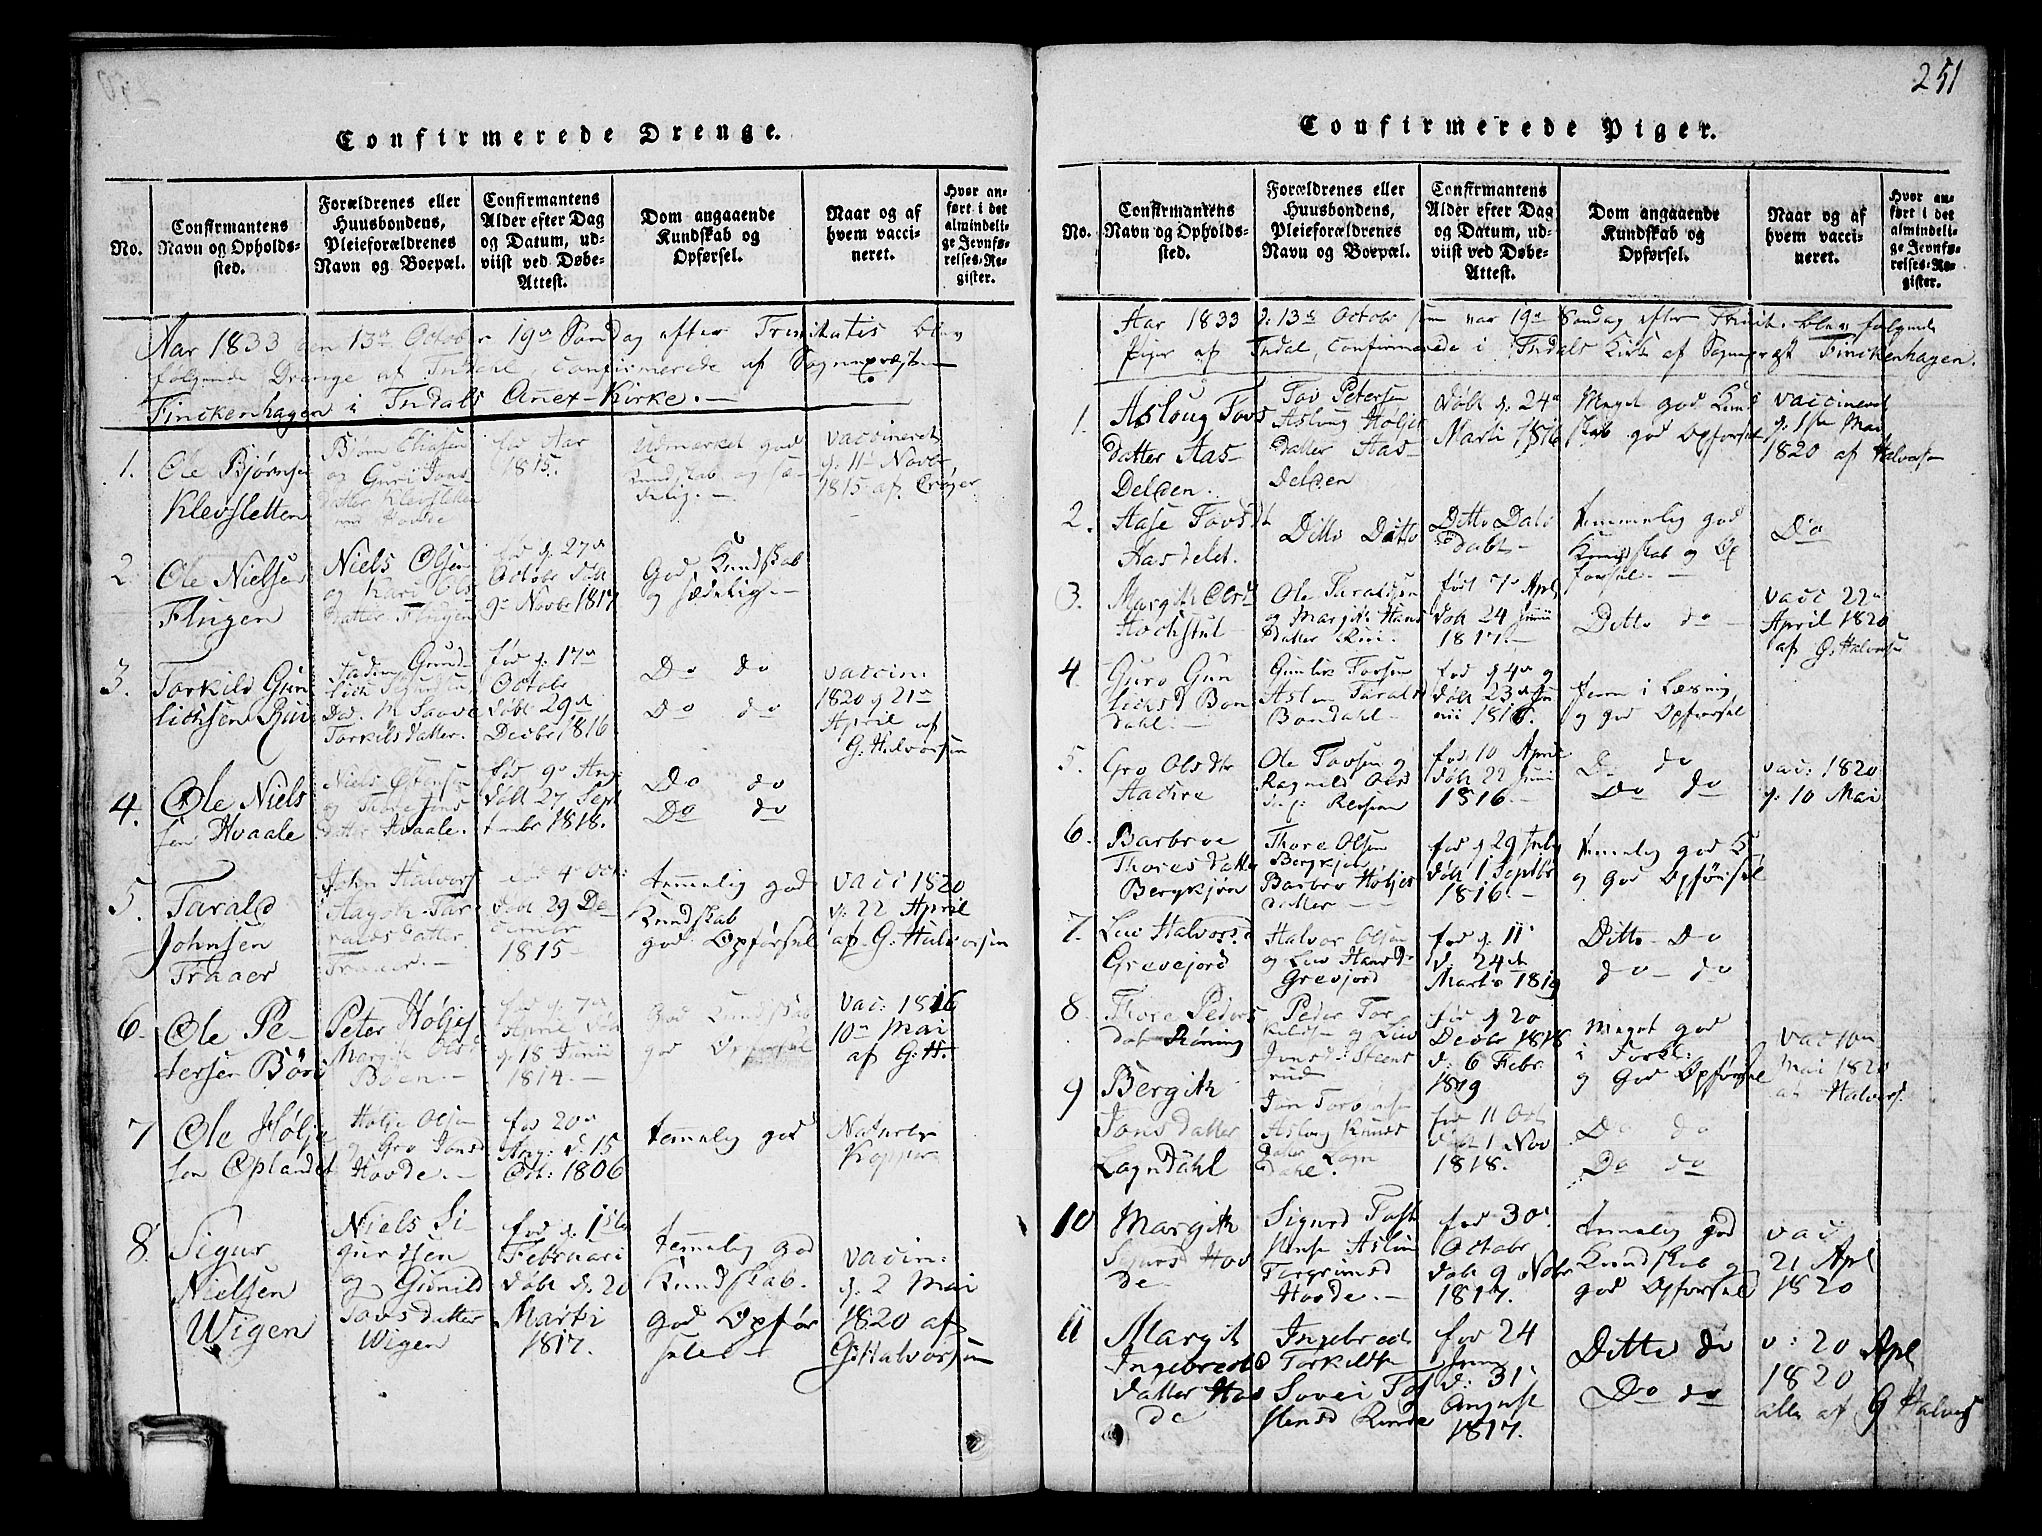 251
Confirmerede Drenge.
No.
Confirmantens
Navn og Opholds-
sted.
Forældrenes eller
Huusbondens,
Pleieforældrenes
Navn og Boepæl.
Confirmantens
Alder efter Dag
og Datum, ud-
viist ved Døbe-
Attest.
Dom angaaende
Kundskab og
Opførsel.
Naar og af
hvem vacci-
neret.
Hvor an-
ført i det
almindeli-
ge Jevnfø-
relses-Re-
gister.
Aar 1833 den 13de Octobr 19de Søndag efter Trinitatis blev
følgende Drenge af Indal, Confirmerede af Sognepræsten
Finckenhagen i Indals Anex-Kirke.
1.
Ole Bjørnsen
Klevsletten
Bjørn Eliasen
og Guri Jons
Datter Klevsletten
Hovde
fød Aar
1815.
Udmærket god
Kundskab og sæ-
delig.
vaccineret
d: 11te Novbr
1815 af Crøger
2.
Ole Nielsen
Flugen
Niels Olsen
og Kari Ols
Datter Flugen
fød d. 27de
Octobr døbt
9de Novbr 1817
God Kundskab
og sædelig.
3.
Torkild Gun
lichsen Rui
Torkilsdatter.
fød d. 17de
Octobr
døbt 29de
Decbr 1816
Do do
Do do
vaccin:
1820 d 21de
April af
G. Halvorsen
4.
Ole Niels
sen Hvaale
Niels Ostensen
og Thore Jons
datter Hvaale.
fød 9de Aug:
døbt 27 Sept
tembr 1818.
Do do
Do do
5.
Tarald
Johnsen
Traaer
John Halvors
Tar
alds datter
Traaer.
fød 4 Oct:
døbt 29 De
cembr
1815
temmelig god
Kundskab
god Opførsel
vacc 1820
d: 22 April
af G: Halvorsen
6.
Ole Pe-
tersen Böen
Peter Høljes
Margit Olsd
Böen.
fød d. 7de
April døbt
d: 18 Junii
1814.
God Kundskab
god Opførsel
vac: 1816
10de Mai
af G: H.
7
Ole Hølje
sen Oplandet
Hølje Olsen
og Gro Jonsd
Hovde.
fød 20de
Aug: d. 15
Oct: 1806
temmelig god
Naturlig
Kopper
8.
Sigur
Nielsen
Wigen
Niels Si
gurdsen
og Gunild
Tovsdatter
Wigen
fød d. 1ste
Februari
døbt d: 20
Marti
1817.
temmelig god
Kundskab.
god Opfør
sel
vacin:
d: 2 Mai
1820 af
G: Halvorsen
Confirmerede Piger.
No.
Confirmantens
Navn og Opholds-
sted.
Forældrenes eller
Huusbondens,
Pleieforældrenes
Navn og Boepæl.
Confirmantens
Alder efter Dag
og Datum, ud-
viist ved Døbe-
Attest.
Dom angaaende
Kundskab og
Opførsel.
Naar og af
hvem vacci-
neret.
Hvor an-
ført i det
almindeli-
ge Jevnfø-
relses-Re-
gister.
Aar 1833 d: 13de Octobr som var 19de Søndag efter Trinit. blev følgende
Piger af Indal, Confirmerede i Indals Kirke af Sognepræst Finckenhagen.
1.
Asloug Tovs
datter Aas-
Deløen.
Tov Petersen
Asloug Høljes
Datter Aas-
deløen
Døbt d: 24de
Marti 1816
Meget god Kund
skab god Opførsel
vaccineret
d: 1ste Mai
1820 af Halvorsen
2.
Aase Tovsdt
Aasdelet.
Ditto Ditto
Ditto Dato
døbt
temmelig god
Kundskab og Op
førsel.
Do
3.
Margith Olsd
Hochstul
Ole Taraldsen
og Margit Hans
Datter Rui.
fød 7de Apl
døbt 24 Junii
1817.
Ditto do
vacc 22de
April 1820
af G: Halvorsen
4
Guro Gun
lichsd Bon
dahl.
Gunlik Torsen
Aslou Taralsd
Bondahl
fød d 4de og
døbt 23de Ju
nii 1816.
fem i Læsnig,
og god Opførsel
5.
Gro Olsdtr
Ole Tovsen og
Ragnild Olsd
fød 10 April
døbt 22 Junii
1816.
Do do
Do do
vac: 1820
d: 10 Mai
6.
Barbroe
Thores datter
Bergkjøn
Thore Olsen
Bergkjøn
Barbro Høljes
datter
fød d 29 July
døbt 1 Septbr
1816.
temmelig god K
og God Opførsel
7.
Liv Halvorsd
Grevejord
Halvor Olsen
og Liv Hansdr
Grevjord
fød d: 11
d. 24de
Marts 1819
Ditto Do
do do
8.
Thore Peders
dat Röning
Peder Tor
kildsen og Liv
Jonsd: Steens
rud
fød d 20
Decbr 1818
d: 6 Febr
1819
Meget god
i Forkl:
og God Opførsel
vac 10de
Mai 1820
af Halvors.
9
Bergith
Jonsdatter
Logndahl
Jon
Asloug Knuds
dater Logn
dahl.
fød 11 Oct
døbt 1 Nov
1818.
Do do
Do do
10
Margith
Sigurs Hov
de
Sigurd Tosten
Aslou
Torgrimsd
Hovde.
fød 30te
Octobr
døbt 9 Nobr
1817.
temmelig god
Kundskab og
god Opførsel
vac
21 Apl
1820
11
Margit
Ingebretsd
datter Hov
de
Ingebredt
Torkildsen
Sovei Tos
stensd
fød 24
Juni
d: 31
August
1817.
Ditto do
Do do
v: 20 Apl
1820
alle af G Halvors